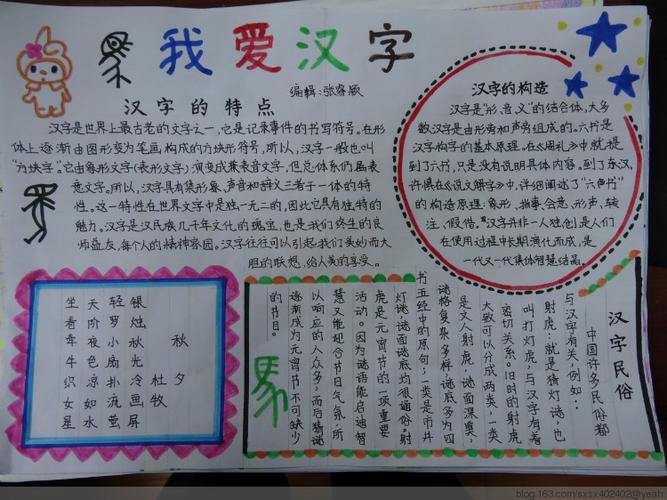 我爱汉字
编辑:张
汉字的特点
汉字是世界上最古老的文字之一,它是记录事件的书写符号。在形
体上逐渐由图形变为笔画构成的方块形符号。所以,汉字一般也叫
“方块字”。它由象形文字(表形文字)演变成兼表音文字,但总体系仍属表
意文字。所以,汉字具有集形象、声音和辞义三者于一体的特
性。这一特性在世界文字中是独一无二的,因此它具有独特的
魅力。汉字是汉民族几千年文化的瑰宝,也是我们终生的良
师益友,每个人的精神家园。汉字往往可以引起我们美妙而大
胆的联想,给人美的享受。
汉字的构造
汉字是“形、音、义”的结合体,大多
数汉字是由形旁和声旁组成的。六书是
汉字构字的基本原理,在《周礼》中就提
到了六书,只是没有说明具体内容。到了东汉,
许慎在《说文解字》中,详细阐述了“六书”
的构造原理:象形、指事、会意、形声、转
注、假借。汉字并非一人独创,是人们
在使用过程中长期演化而成,是
一代又一代集体智慧结晶。
秋夕
杜牧
银烛秋光冷画屏
轻罗小扇扑流萤
天阶夜色凉如水
坐看牵牛织女星
汉字民俗
中国许多民俗都
与汉字有关,例如:
射虎:就是猜灯谜,也
叫打灯虎,与汉字有着
密切关系。旧时的射虎
大致可以分成两类,一类
是文人射虎,谜面深奥,
谜格复杂多样,谜底多为四
书五经中的原句;一类是市井
灯谜,谜面谜底均很通俗。射
虎是元宵节的一项重要
活动。因为谜语能启迪智
慧又能迎合节日气氛,所
以响应的人众多,而后猜谜
逐渐成为元宵节不可缺少
的节目。
blog.163.com/sxsx402402@yeah